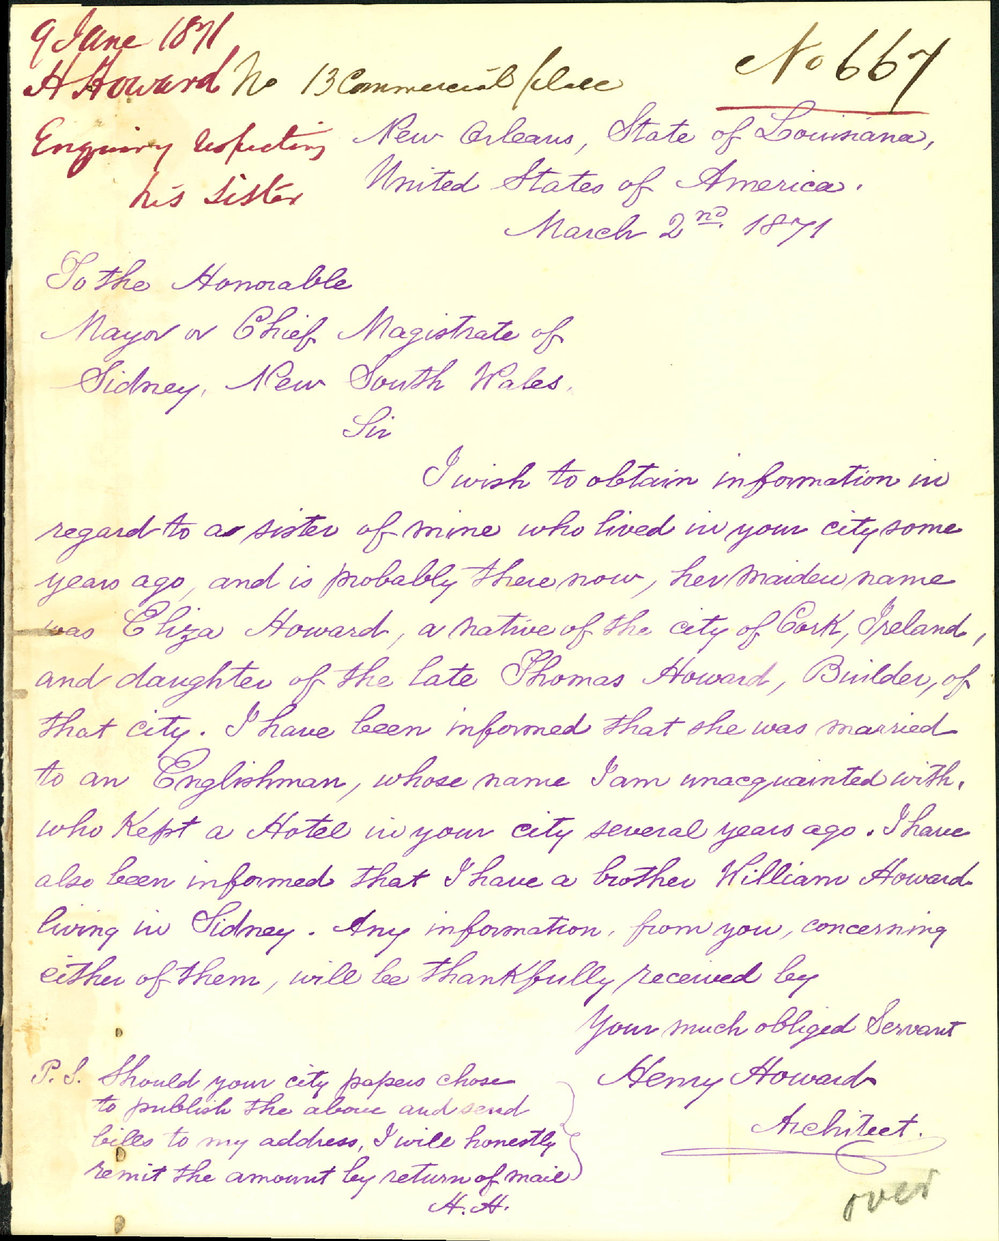 9 June 1871
H Howard
Enquiry respecting
his sister
No 667
No 13 Commercial place
New Orleans, State of Louisiana,
United States of America.
March 2nd. 1871
To the Honorable
Mayor or Chief Magistrate of
Sidney, New South Wales.
Sir
I wish to obtain information in
regard to a sister of mine who lived in your city some
years ago, and is probably there now, her maiden name
was Eliza Howard, a native of the city of Cork, Ireland,
and daughter of the late Thomas Howard, Builder, of
that city. I have been informed that she was married
to an Englishman, whose name I am unacquainted with,
who Kept a Hotel in your city several years ago. I have
also been informed that I have a brother William Howard
living in Sidney. Any information, from you, concerning
either of them, will be thankfully received by
Your much obliged Servant
Henry Howard
Architect.
P.S. Should your city papers chose
to publish the above and send
bills to my address, I will honestly
remit the amount by return of mail
H.H.
over